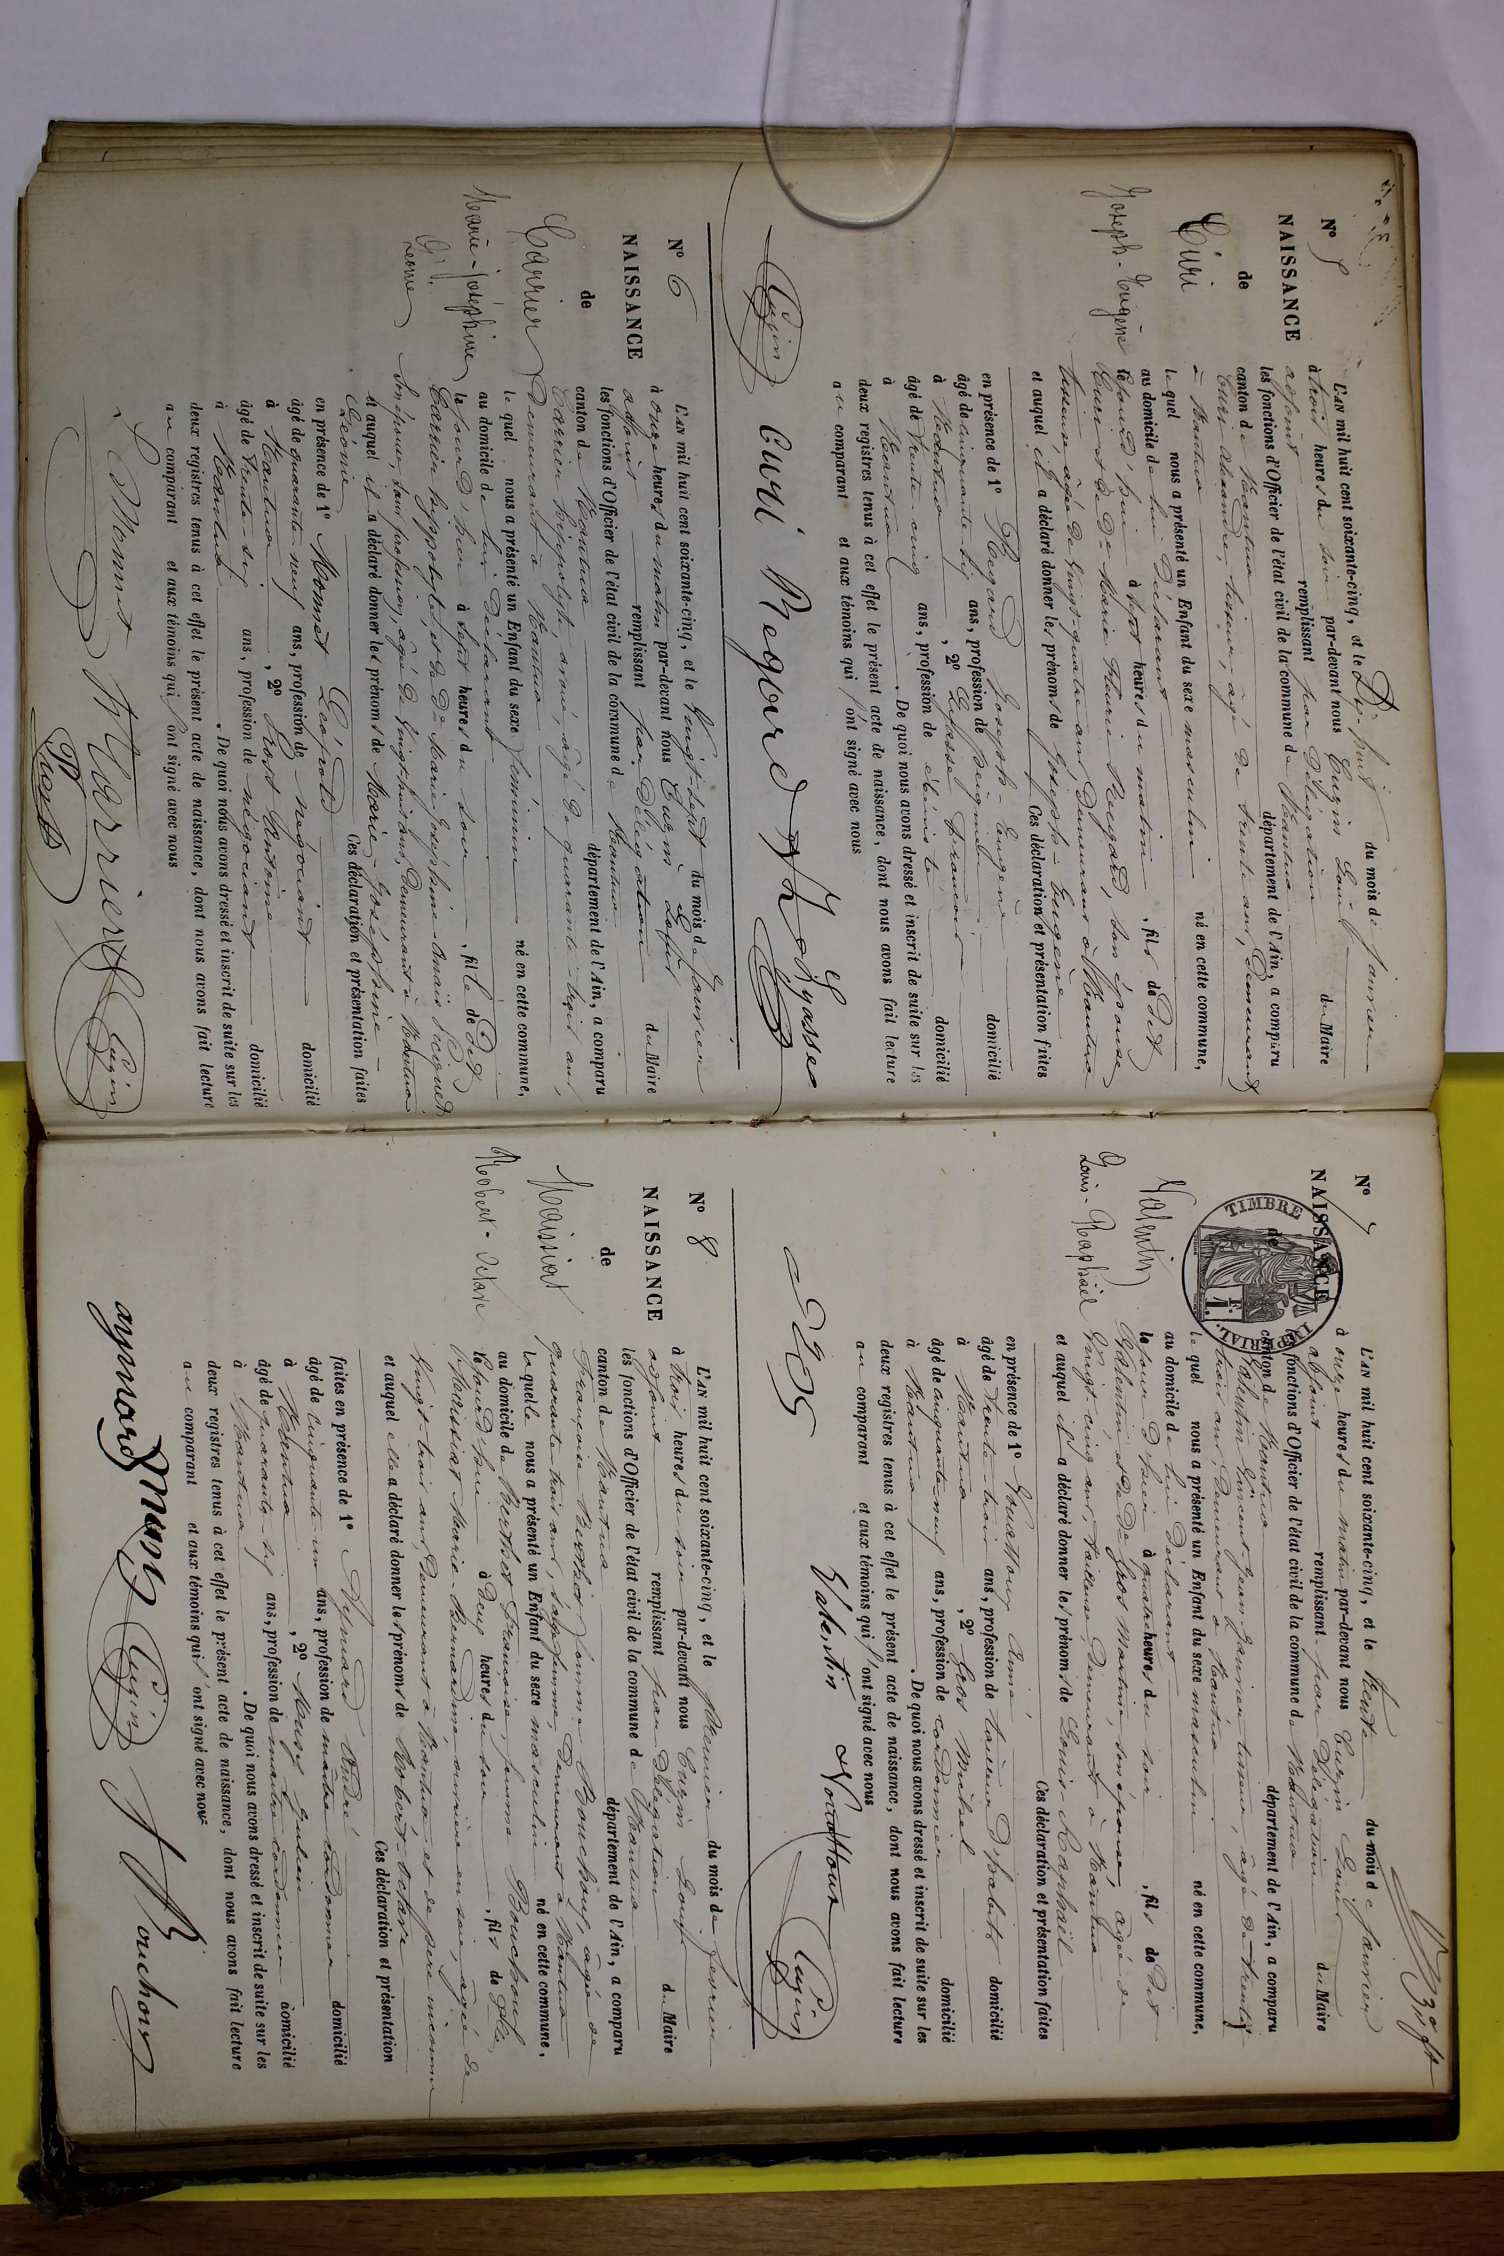 N° 5
NAISSANCE
de
Curi
Joseph-Eugène
L'AN mil huit cent soixante-cinq, et le Dix huit du mois de janvier
à trois heures du soir par-devant nous Cugin Louis du Maire
adjoint remplissant par délégation
les fonctions d'Officier de l'état civil de la commune de Nantua
canton de Nantua département de l'Ain, a comparu
Curi Alexandre, tisseur, âgé de trente ans, demeurant
à Nantua
lequel nous a présenté un Enfant du sexe masculin né en cette commune,
au domicile de lui déclarant
le jourd'hui à sept heures du matin, fils de Dit
Curi et de De Marie Regard, son épouse
tisseuse âgée de vingt-quatre ans demeurant à Nantua
et auquel il a déclaré donner les prénoms de Joseph-Eugène
Ces déclaration et présentation faites
en présence de 1° Regard Joseph-Eugène
âgé de cinquante six ans, profession de peignier domicilié
à Nantua, 2° Lyasse François
âgé de trente-cinq ans, profession de ébéniste domicilié
à Nantua. De quoi nous avons dressé et inscrit de suite sur les
deux registres tenus à cet effet le présent acte de naissance, dont nous avons fait lecture
au comparant et aux témoins qui ont signé avec nous
Cugin Curi Regard Lyasse
N° 6
NAISSANCE
de
Carrier
Marie-Joséphine
Léonie
L'AN mil huit cent soixante-cinq, et le vingt-sept du mois de janvier
à onze heures du matin par-devant nous Cugin Louis du Maire
adjoint remplissant par délégation
les fonctions d'Officier de l'état civil de la commune de Nantua
canton de Nantua département de l'Ain, a comparu
Carrier hippolyte avoué, âgé de quarante-sept ans,
demeurant à Nantua
lequel nous a présenté un Enfant du sexe féminin né en cette commune,
au domicile de lui déclarant
le jour d'hier à sept heures du soir, fille de Dit
Carrier hippolyte, et de De Marie Joséphine-Anaïs
son épouse, sans profession, âgée de vingt huit ans, demeurant à Nantua
et auquel il a déclaré donner les prénoms de Marie-Joséphine-
Léonie Ces déclaration et présentation faites
en présence de 1° Monnet Léopold
âgé de quarante neuf ans, profession de négociant domicilié
à Nantua, 2° Prost Antoine
âgé de trente-six ans, profession de négociant domicilié
à Nantua. De quoi nous avons dressé et inscrit de suite sur les
deux registres tenus à cet effet le présent acte de naissance, dont nous avons fait lecture
au comparant et aux témoins qui ont signé avec nous
L Monnet H Carrier Cugin
Prost
N° 7
NAISSANCE
de
TIMBRE IMPERIAL
1 F.
Valentin
Louis-Raphaël
L'AN mil huit cent soixante-cinq, et le trente du mois de janvier
à onze heures du matin par-devant nous Cugin Louis du Maire
adjoint remplissant par délégation
les fonctions d'Officier de l'état civil de la commune de Nantua
canton de Nantua département de l'Ain, a comparu
Valentin tisseur, âgé de trente
trois ans, demeurant à Nantua
lequel nous a présenté un Enfant du sexe masculin né en cette commune,
au domicile de lui déclarant
le jour d'hier à onze heures du soir, fils de Dit
Valentin et de De Gros Martine, son épouse, âgée de
vingt-cinq ans, tailleuse, demeurant à Nantua
et auquel il a déclaré donner les prénoms de Louis-Raphaël
Ces déclaration et présentation faites
en présence de 1° Nouattoux Aimé
âgé de trente-trois ans, profession de tailleur d'habits domicilié
à Nantua, 2° Gros Michel
âgé de cinquante neuf ans, profession de cordonnier domicilié
à Nantua. De quoi nous avons dressé et inscrit de suite sur les
deux registres tenus à cet effet le présent acte de naissance, dont nous avons fait lecture
au comparant et aux témoins qui ont signé avec nous
Gros Valentin Cugin
N° 8
NAISSANCE
de
Maissiat
Robert-Octave
L'AN mil huit cent soixante-cinq, et le premier du mois de février
à trois heures du soir par-devant nous Cugin Louis du Maire
adjoint remplissant par délégation
les fonctions d'Officier de l'état civil de la commune de Nantua
canton de Nantua département de l'Ain, a comparu
Françoise Berthet femme Bouchoux, âgée de
quarante trois ans, sage femme, demeurant à Nantua
laquelle nous a présenté un Enfant du sexe masculin né en cette commune,
au domicile de Berthet Françoise, femme Bouchoux
le jourd'hui à deux heures du soir, fils de Dlle
Maissiat Marie-Bernardine ouvrière en soie, âgée de
vingt trois ans, demeurant à Nantua et de père inconnu
et auquel elle a déclaré donner les prénoms de Robert-Octave
Ces déclaration et présentation
faites en présence de 1° Aymard André
âgé de cinquante un ans, profession de maître cordonnier domicilié
à Nantua, 2° Musy Julien
âgé de quarante-six ans, profession de maître cordonnier domicilié
à Nantua. De quoi nous avons dressé et inscrit de suite sur les
deux registres tenus à cet effet le présent acte de naissance, dont nous avons fait lecture
au comparant et aux témoins qui ont signé avec nous
aymard Musy Cugin f Bouchoux